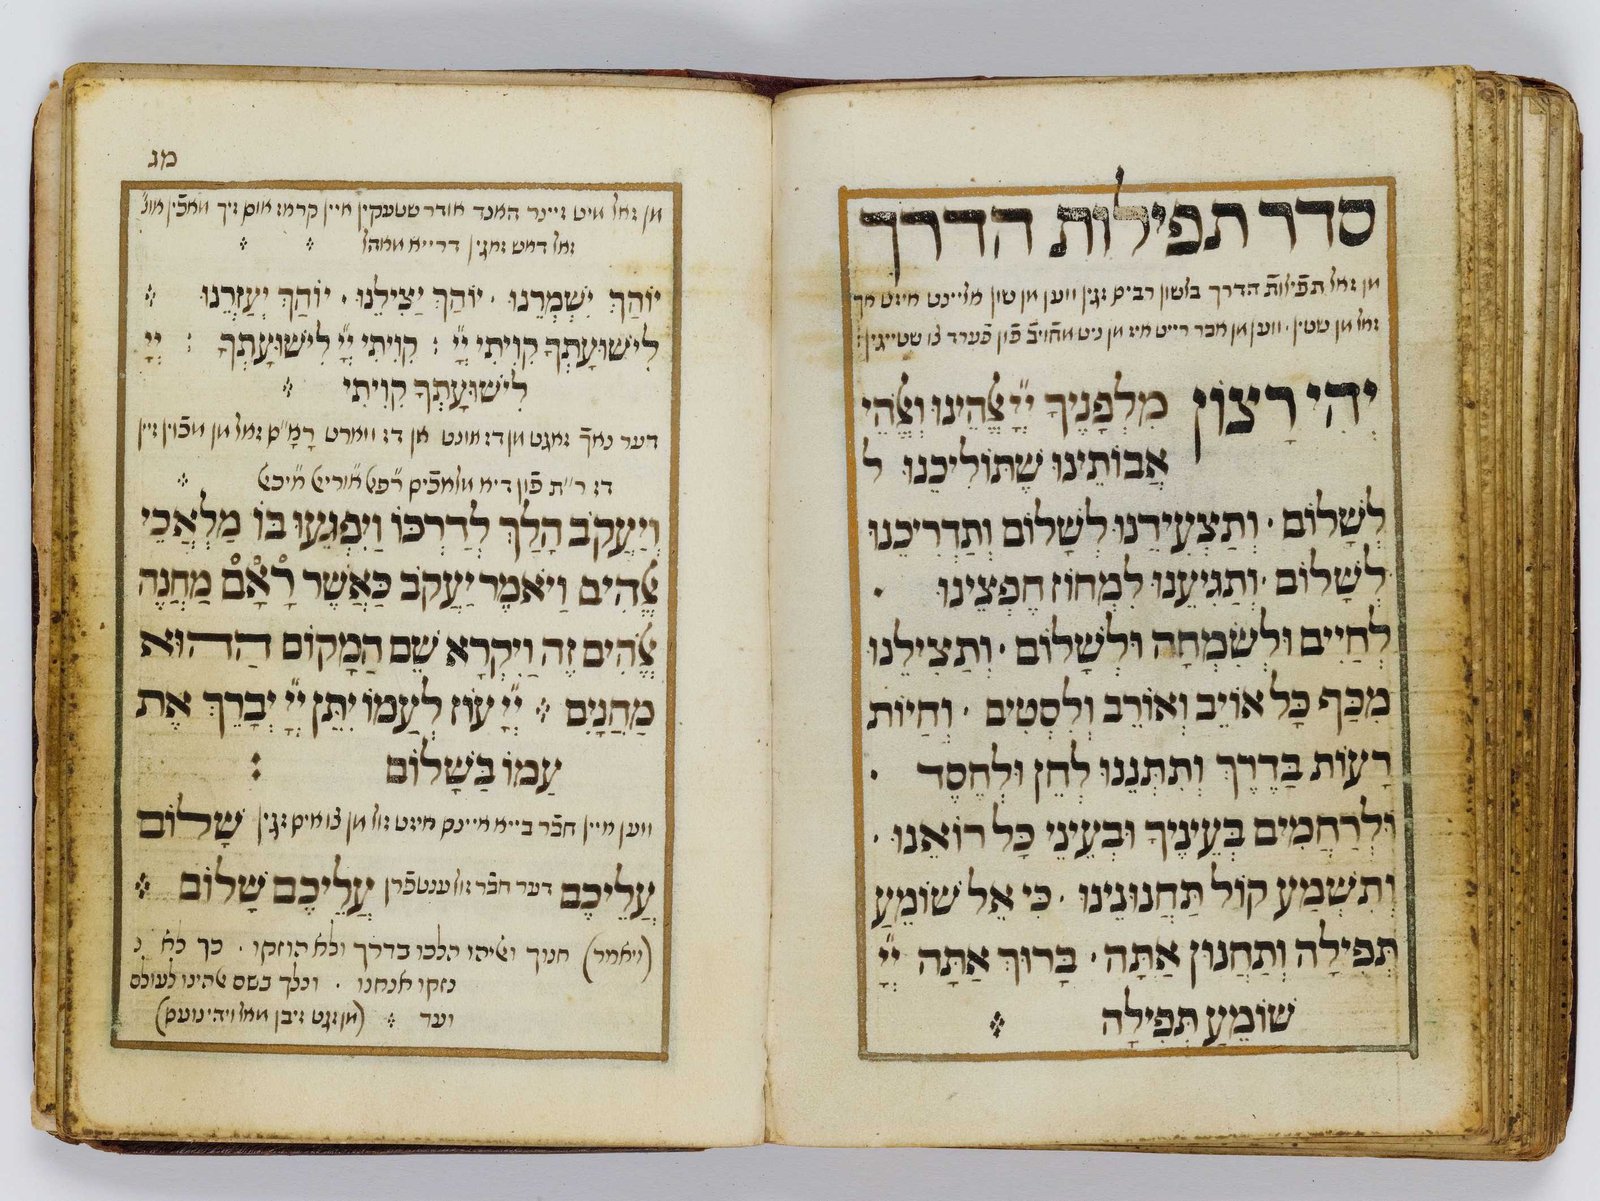 סדר תפילות הדרך
מן זאל תפילות הדרך בלשון רבים זגין ווען מן שון אליינט איזט מך
זאל מן שטין · ווען מן אבר רייט איז מן ניט מחויב פון פערד צו שטייגין:
יְהִי רָצוֹן מִלְפָנֶיךָ יְיָ אֱלֹהֵינוּ וֶאֱלֹהֵי
אֲבוֹתֵינוּ שֶׁתּוֹלִיכֵנוּ ל
לְשָׁלוֹם · וְתַצְעִידֵנוּ לְשָׁלוֹם וְתַדְרִיכֵנוּ
לְשָׁלוֹם · וְתַגִיעֵנוּ לִמְחוֹז חֶפְצֵינוּ ·
לְחַיִים וּלְשִׂמְחָה וּלְשָׁלוֹם · וְתַצִילֵנוּ
מִכַּף כָּל אוֹיֵב וְאוֹרֵב וְלִסְטִים · וְחַיוֹת
רָעוֹת בַּדֶרֶךְ וְתִתְּנֵנוּ לְחֵן וּלְחֶסֶד ·
וּלְרַחֲמִים בְּעֵינֶיךָ וּבְעֵינֵי כָּל רוֹאֵנוּ ·
וְתִשְׁמַע קוֹל תַּחֲנוּנֵינוּ · כִּי אֵל שׁוֹמֵעַ
תְּפִילָה וְתַחֲנוּן אַתָּה · בָּרוּךְ אַתָּה יְיָ
שׁוֹמֵעַ תְּפִילָה
מג
מן זאל מיט זיינר האנד אודר שטעקין איין קרמז אום זיך מאכין אונ'
זאל דאש זאגין דרייא מאהל
יוֹהַךְ יִשְׁמְרֵנוּ · יוֹהַךְ יַצִילֵנוּ · יוֹהַךְ יְעַזְרֵנוּ
לִישׁוּעָתְךָ קִוִיתִי יְיָ : קִוִיתִי יְיָ לִישׁוּעָתְךָ : יְיָ
לִישׁוּעָתְךָ קִוִיתִי
דער נאך זאגט מן דז אונט אן דז ווארט רָמָ"ם זאל מן מכוין זיין
דז ר"ת פון דיא מלאכים
וְיַעֲקֹב הָלַךְ לְדַרְכּוֹ וַיִפְגְעוּ בוֹ מַלְאֲכֵי
אֱלֹהִים וַיֹאמֶר יַעֲקֹב כַּאֲשֶׁר רָאָם מַחֲנֶה
אֱלֹהִים זֶה וַיִקְרָא שֵׁם הַמָקוֹם הַהוּא
מַחֲנָיִם יְיָ עוֹז לְעַמוֹ יִתֵּן יְיָ יְבָרֵךְ אֶת
עַמוֹ בַּשָׁלוֹם
ווען איין חבר בייא איינם איזט זול מן צו אים זגין שָׁלוֹם
עֲלֵיכֶם דער חבר זול ענטפרן עֲלֵיכֶם שָׁלוֹם
(ויאמר) חנוך ואליהו הלכו בדרך ולא הוזקו · כך לא נ
נזקו אנחנו · ונלך בשם אלהינו לעולם
ועד (מן זגט זיבן מאל ויהי נועם)